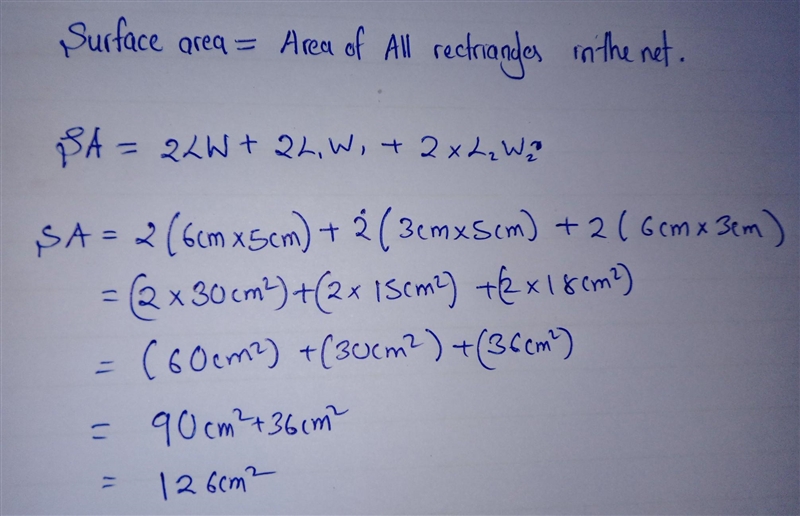 Surface area = Area of All rectriangles in the net.
SA = 2LW + 2L₁W₁ + 2 × L₂W₂
SA = 2(6cm × 5cm) + 2(3cm × 5cm) + 2(6cm × 3cm)
= (2 × 30cm²) + (2 × 15cm²) + (2 × 18cm²)
= (60cm²) + (30cm²) + (36cm²)
= 90cm² + 36cm²
= 126cm²